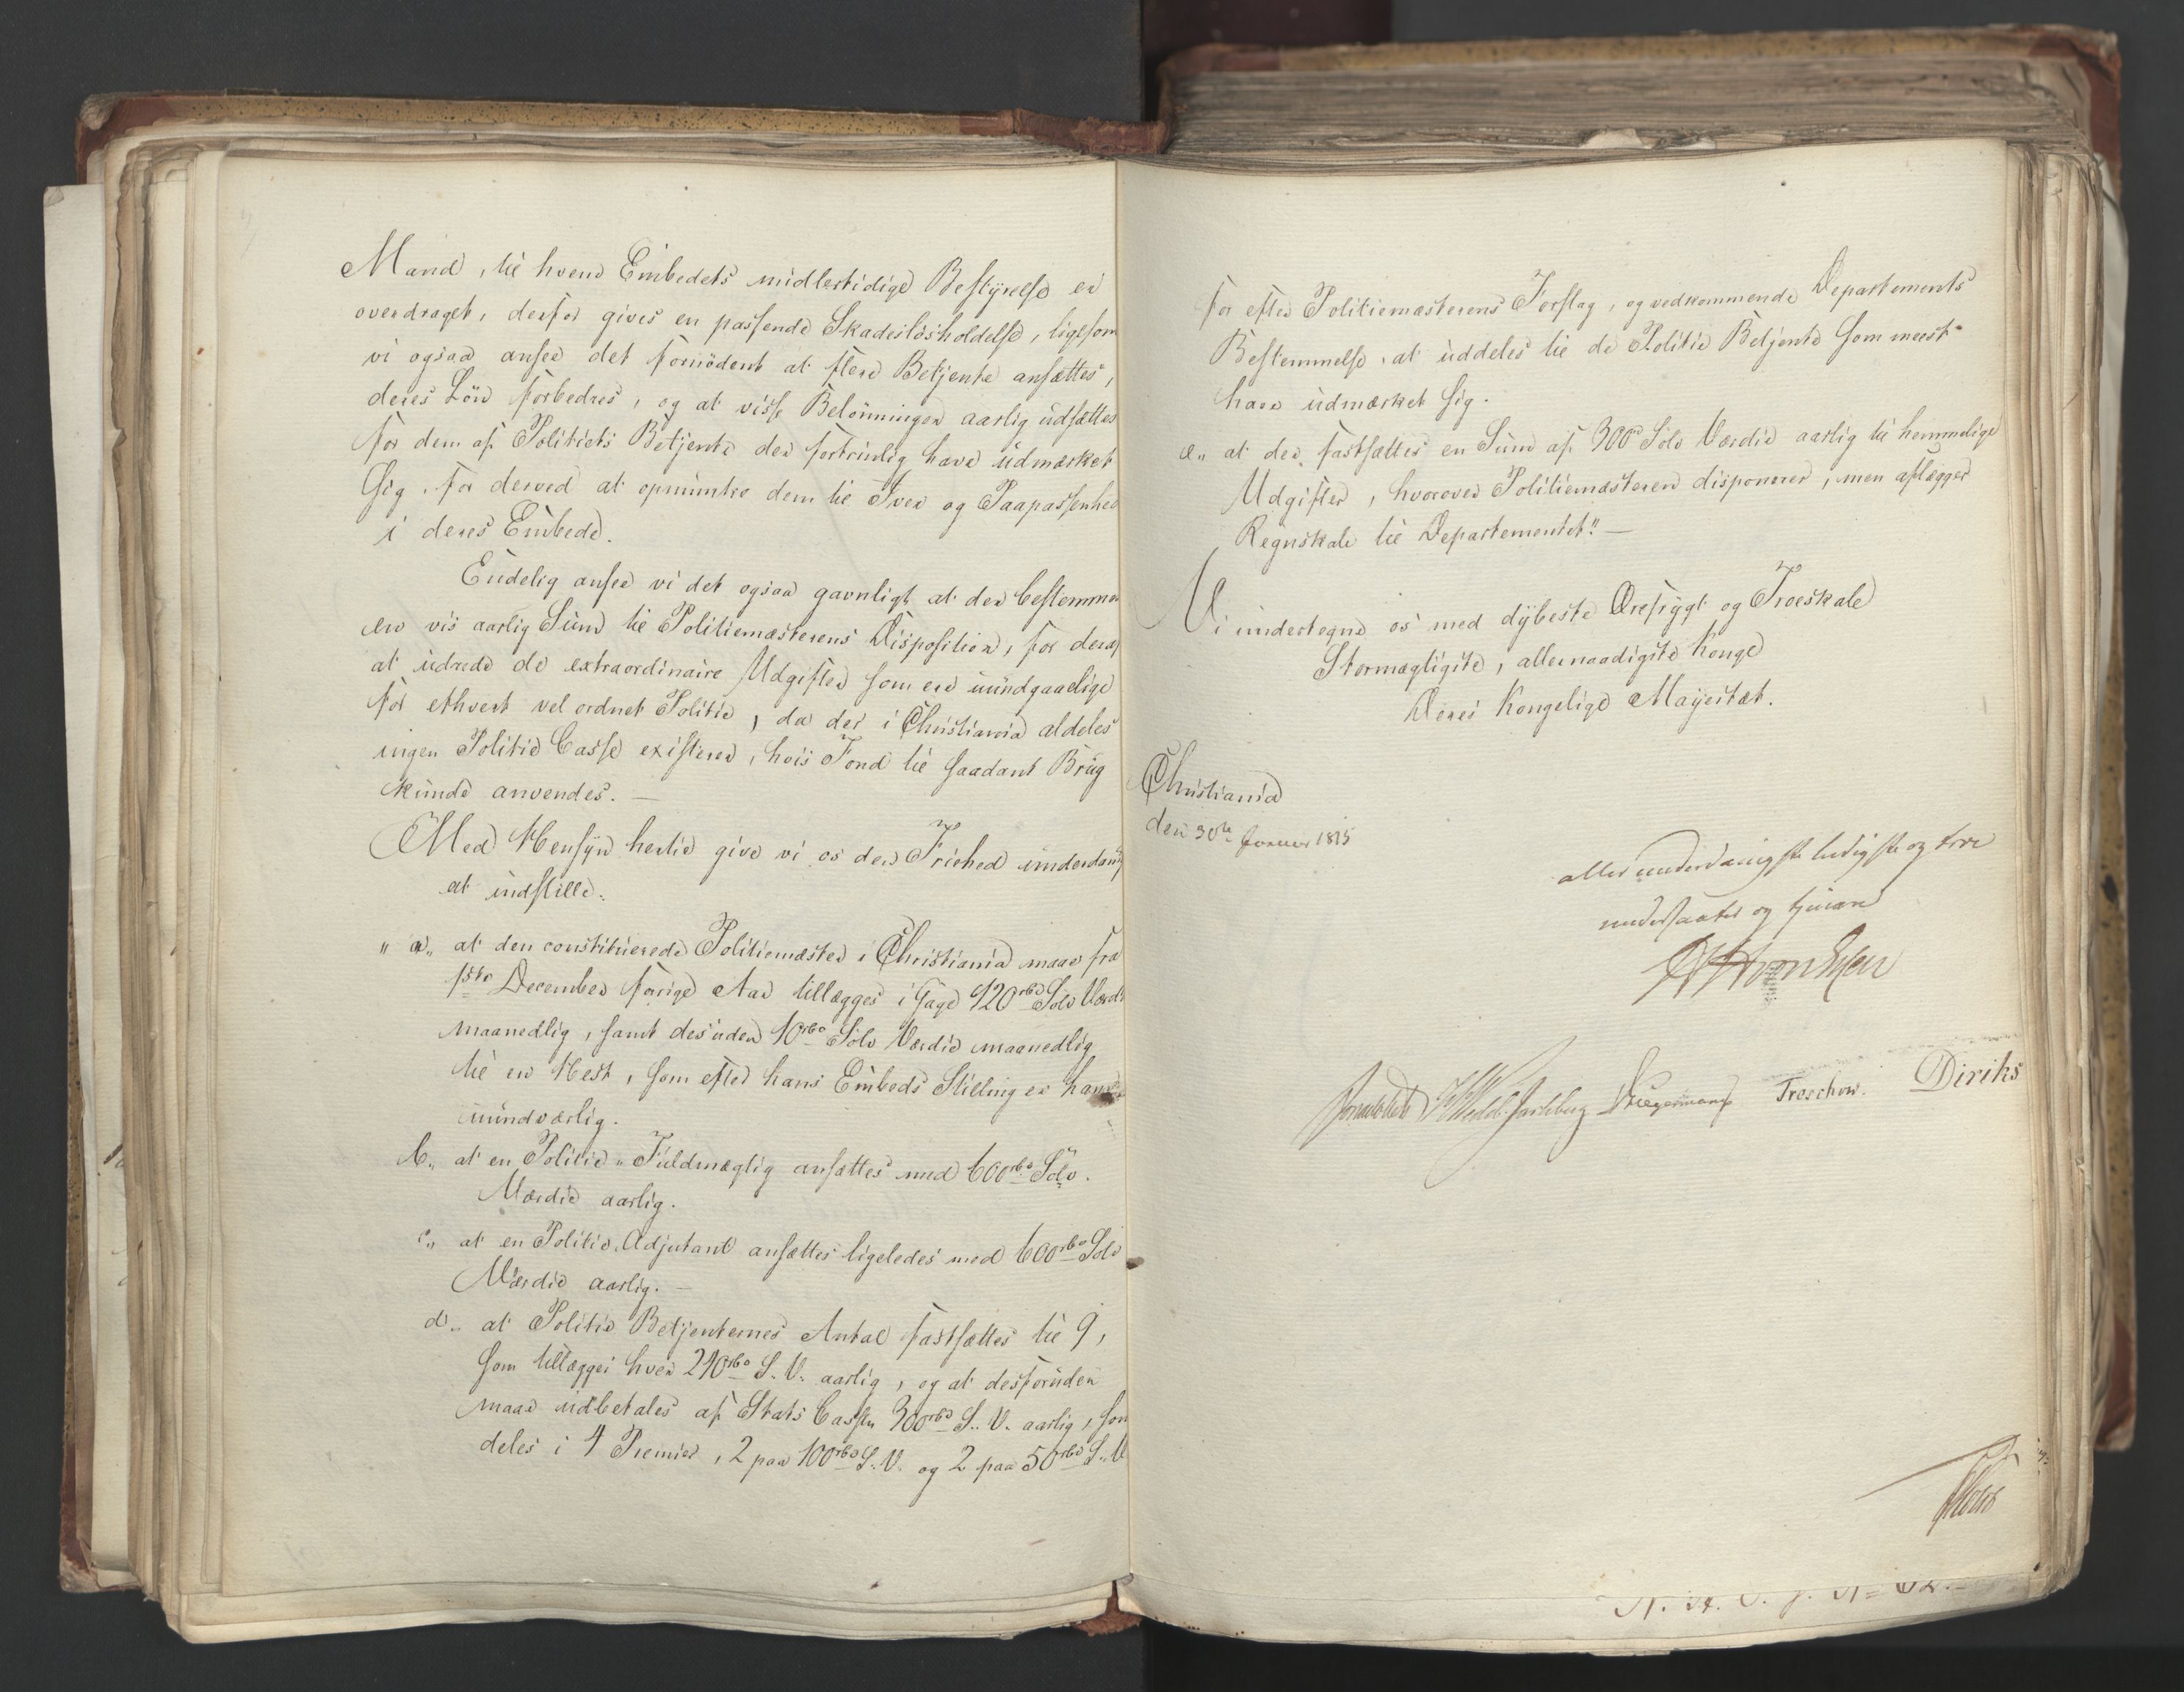 Mand, til hvem Embedets midlertidige Bestÿrelse er
overdraget, derfor gives en passende Skadesløsholdelse, ligesom
vi ogsaa ansee det fornödent at flere Betjente ansættes,
deres Lön forbedres, og at visse Belönninger aarlig udsættes
for dem af Politiets Betjente der fortrinlig have udmærket
sig, for derved at opmuntre dem til Iver og Paapassenhed
i deres Embede.
Endelig ansee vi det ogsaa gavnligt at der bestemmes
en vis aarlig Sum til Politiemæsterens Disposition, for deraf
at udrede de extraordinaire Udgifter som ere uundgaaelige
for ethvert vel ordnet Politie, da der i Christiania aldeles
ingen Politie Casse existerer, hvis Fond til saadant Brug
kunde anvendes. —
Med Hensÿn hertil give vi os den Friehed underdanigst
at indstille:
" a„ at den constituerede Politiemæster i Christiania maae fra
1ste December forrige Aar tillægges i Gage 120 rbd Sölv Værdie
maanedlig, samt desuden 10 rbd Sölv Værdie maanedlig
til en Hest, som efter hans Embeds Stilling er ham
uundværlig.
b„ at en Politie„Fuldmægtig ansættes med 600 rbd Sölv
Værdie aarlig.
c„ at en Politie Adjutant ansættes ligeledes med 600 rbd Sölv
Værdie aarlig. —
d„ at Politie Betjenternes Antal fastsættes til 9,
som tillægges hver 240 rbd S. V. aarlig, og at desforuden
maae udbetales af Stats Cassen 300 rbd S. V. aarlig, som
deles i 4 Premier, 2 paa 100 rbd S. V. og 2 paa 50 rbd S. V.
for efter Politiemæsterens Forslag, og vedkommende Departements
Bestemmelse, at uddeles til de Politie Betjente som meest
have udmærket sig.
e„ at der fastsættes en Sum af 300 rbd Sölv Værdie aarlig til hemmelige
Udgifter, hvorover Politiemæsteren disponerer, men aflægger
Regnskab til Departementet." —
Vi undertegne os med dÿbeste Ærefrÿgt og Troeskab
Stormægtigste, allernaadigste Konge
Deres Kongelige Mayestæt.
Christiania
den 30te Januar 1815
allerunderdanigste lydigste og troe
undersaatter og tjenere
Sommerhielm Wedel Jarlsberg Krieger Treschow. Diriks